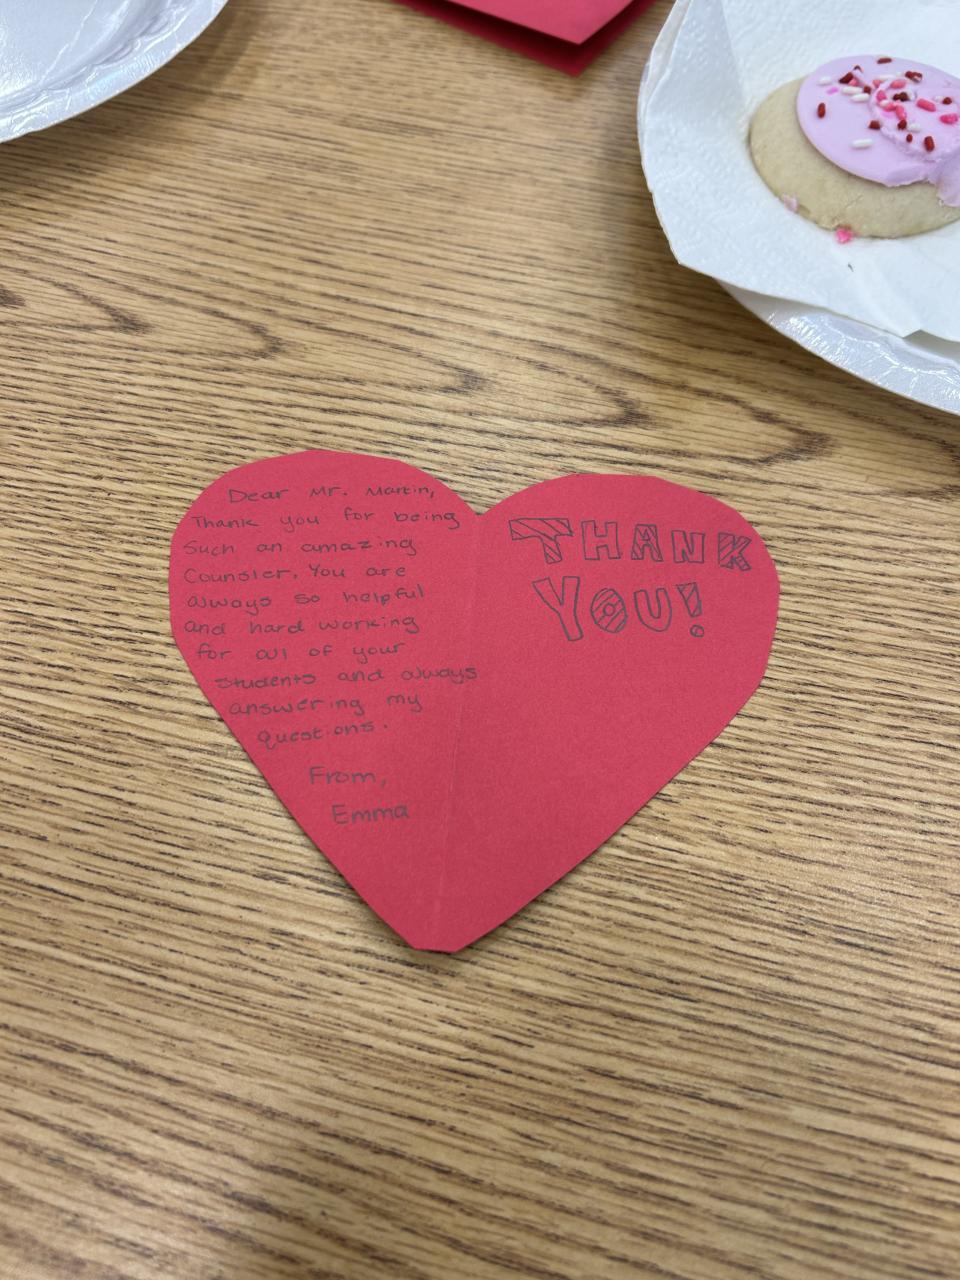 Dear Mr. Martin,
Thank you for being
such an amazing
Counsler. You are
always so helpful
and hard working
for all of your
students and always
answering my
questions.
From,
Emma
THANK
YOU!